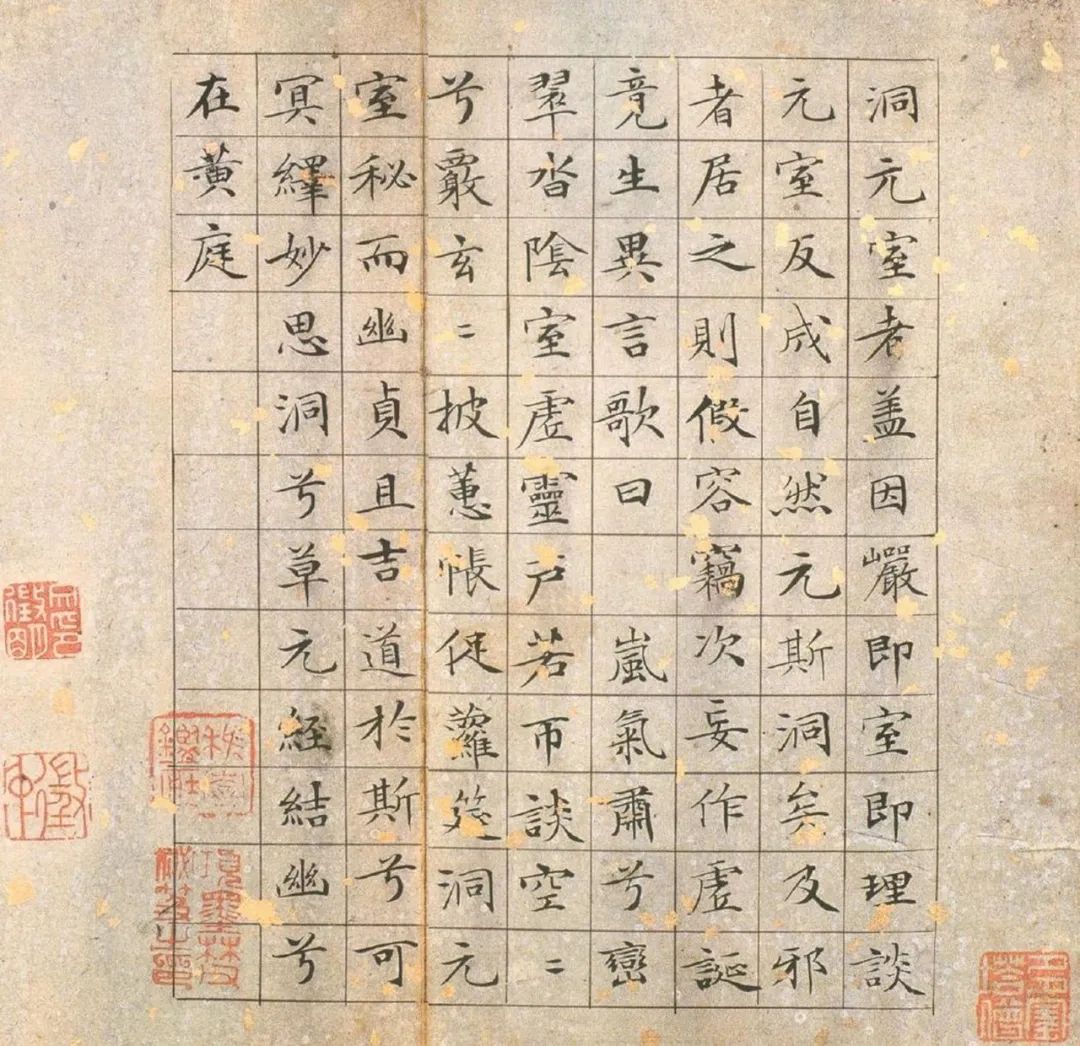 洞元室者盖因巖即室即理談
元室反成自然元斯洞矣及邪
者居之則假容竊次妄作虗誕
竟生異言歌曰 嵐氣肅兮巒
翠沓陰室虗靈戶若帀談空〻
兮覈玄〻披蕙帳促蘿筵洞元
室秘而幽貞且吉道於斯兮可
冥繹妙思洞兮草元経結幽兮
在黄庭
項墨林父
秘笈之印